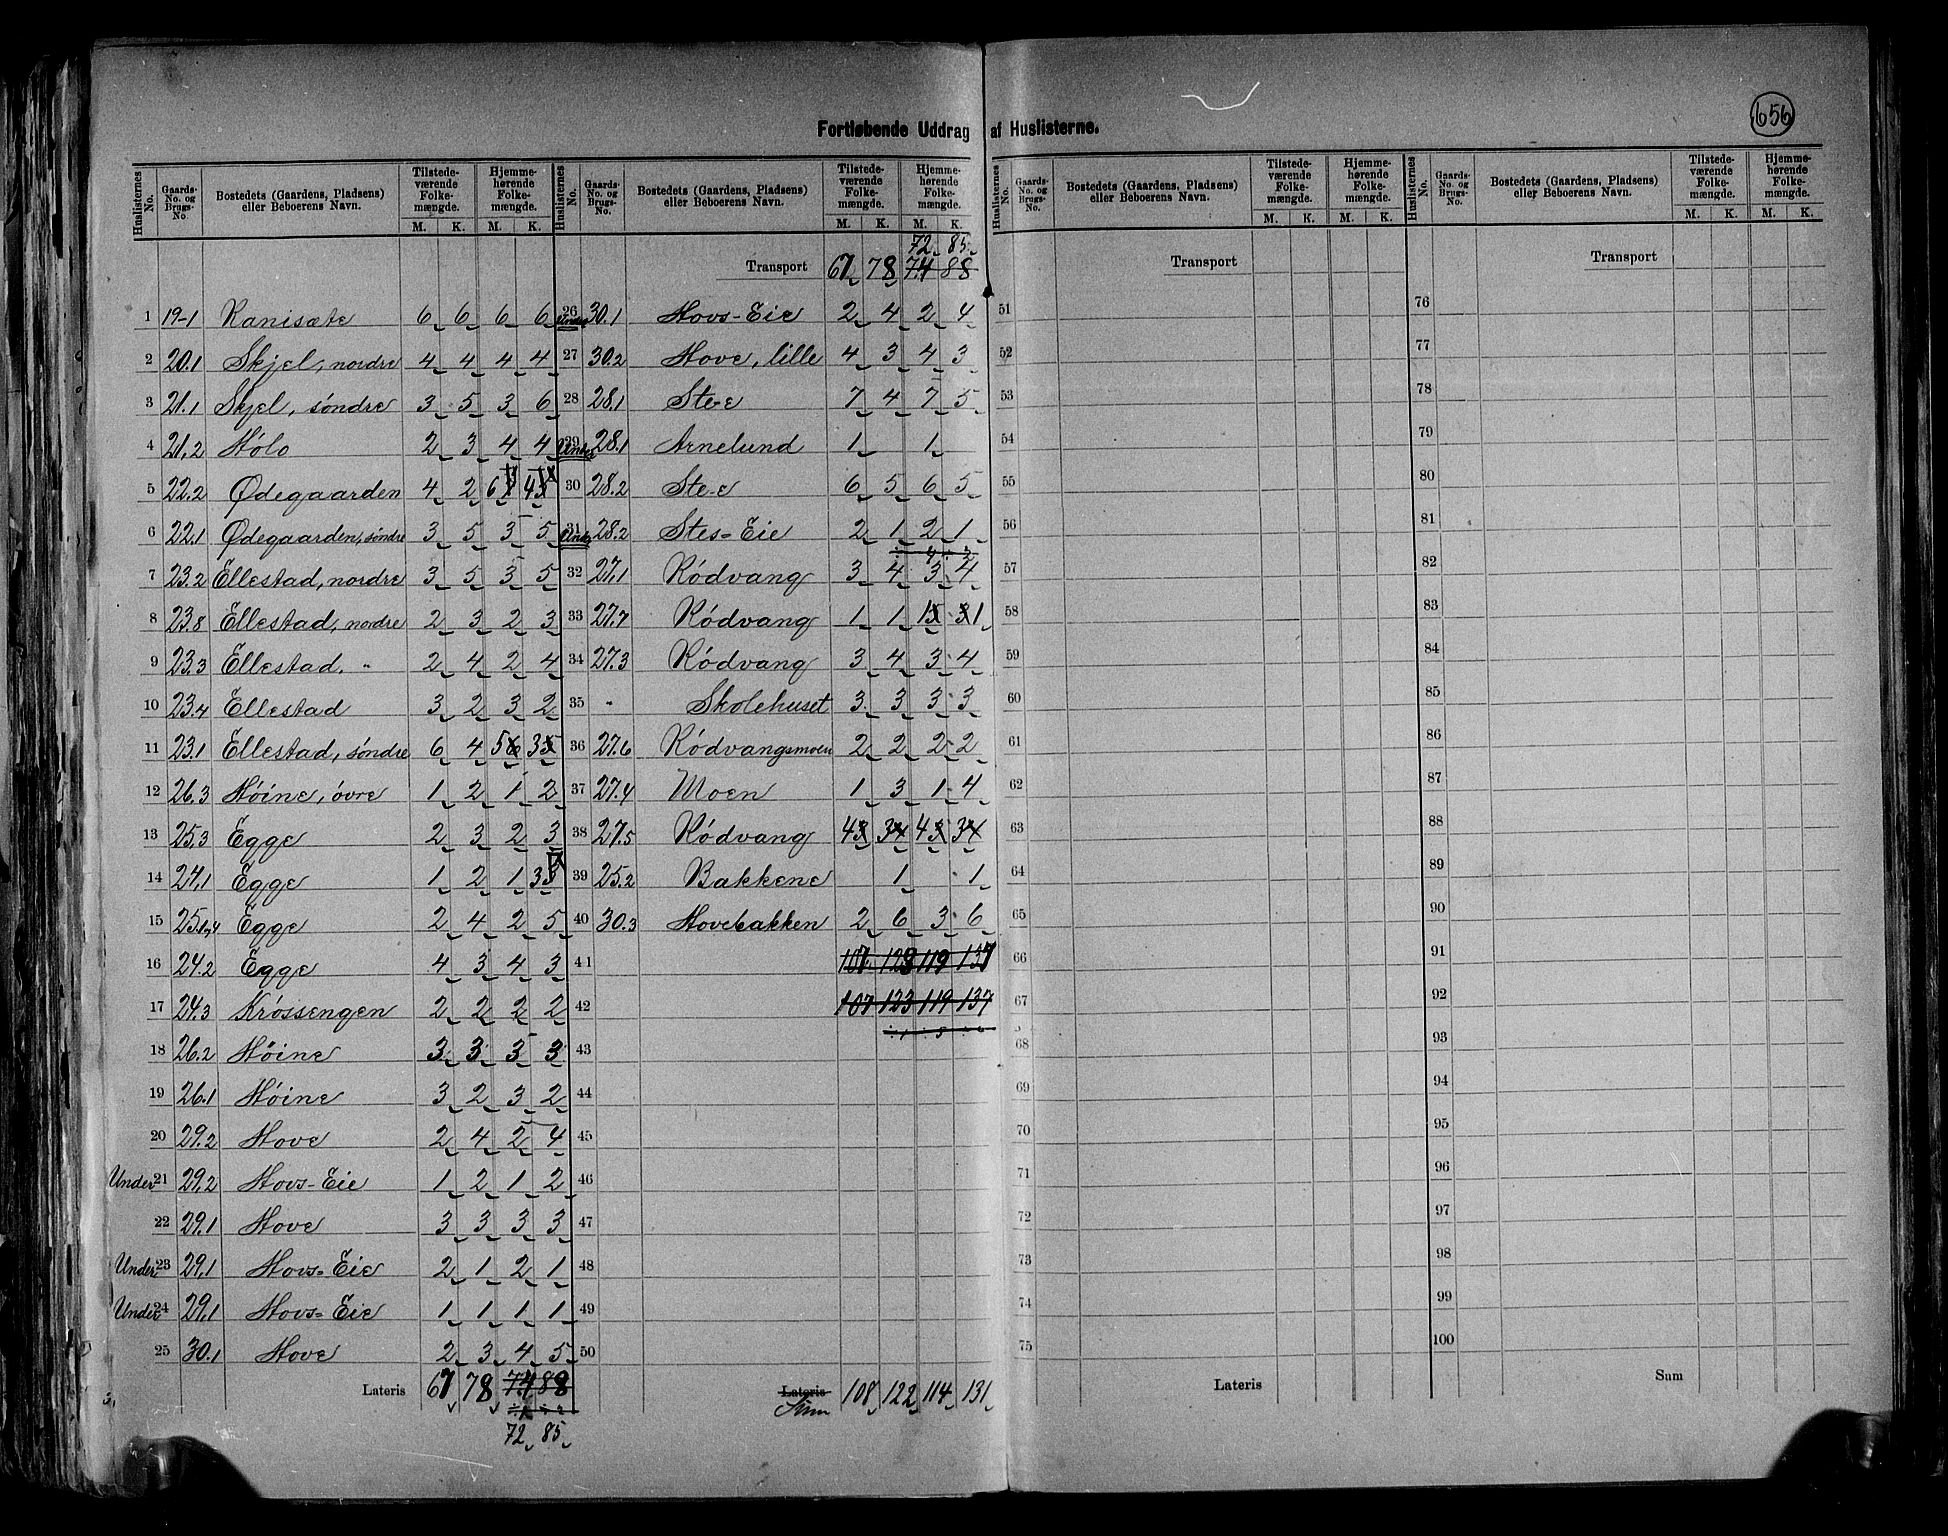 656
Fortløbende Uddrag af Huslisterne.
Huslisternes No. | Gaards-No. og Brugs-No. | Bostedets (Gaardens, Pladsens) eller Beboerens Navn. | Tilstedeværende Folkemængde. M. K. | Hjemmehørende Folkemængde. M. K.
1 19-1 Ranisæte 6 6 6 6
2 20.1 Skjel, nordre 4 4 4 4
3 21.1 Skjel, søndre 3 5 3 6
4 21.2 Hólo 2 3 4 4
5 22.2 Ødegaarden 4 2 6 4
6 22.1 Ødegaarden, søndre 3 5 3 5
7 23.2 Ellestad, nordre 3 5 3 5
8 23.8 Ellestad, nordre 2 3 2 3
9 23.3 Ellestad, " 2 4 2 4
10 23.4 Ellestad 3 2 3 2
11 23.1 Ellestad, søndre 6 4 5 3
12 26.3 Hóine, óvre 1 2 1 2
13 25.3 Egge 2 3 2 3
14 24.1 Egge 1 2 1 3
15 25.1,4 Egge 2 4 2 5
16 24.2 Egge 4 3 4 3
17 24.3 Króssengen 2 2 2 2
18 26.2 Hóine 3 3 3 3
19 26.1 Hóine 3 2 3 2
20 29.2 Hove 2 4 2 4
Under 21 29.2 Hovs-Eie 1 2 1 2
22 29.1 Hove 3 3 3 3
Under 23 29.1 Hovs-Eie 2 1 2 1
Under 24 29.1 Hovs-Eie 1 1 1 1
25 30.1 Hove 2 3 4 5
Lateris 67 78 74 88
72 85
72 85
Transport 67 78 74 88
26 Under 30.1 Hovs-Eie 2 4 2 4
27 30.2 Hove, lille 4 3 4 3
28 28.1 Ste-e 7 4 7 5
29 Under 28.1 Arnelund 1 1
30 28.2 Ste-e 6 5 6 5
31 Under 28.2 Stes-Eie 2 1 2 1
32 27.1 Ródvang 3 4 3 4
33 27.7 Ródvang 1 1 1 1
34 27.3 Ródvang 3 4 3 4
35 " Skolehuset 3 3 3 3
36 27.6 Ródvangsmoen 2 2 2 2
37 27.4 Moen 1 3 1 4
38 27.5 Ródvang 4 3 4 3
39 25.2 Bakkene 1 1
40 30.3 Hovebakken 2 6 3 6
41 107 123 119 137
42 107 123 119 137
43
44
45
46
47
48
49
50
Lateris Sum 108 122 114 131
Huslisternes No. | Gaards-No. og Brugs-No. | Bostedets (Gaardens, Pladsens) eller Beboerens Navn. | Tilstedeværende Folkemængde. M. K. | Hjemmehørende Folkemængde. M. K.
Transport
51
52
53
54
55
56
57
58
59
60
61
62
63
64
65
66
67
68
69
70
71
72
73
74
75
Lateris
Huslisternes No. | Gaards-No. og Brugs-No. | Bostedets (Gaardens, Pladsens) eller Beboerens Navn. | Tilstedeværende Folkemængde. M. K. | Hjemmehørende Folkemængde. M. K.
Transport
76
77
78
79
80
81
82
83
84
85
86
87
88
89
90
91
92
93
94
95
96
97
98
99
100
Sum